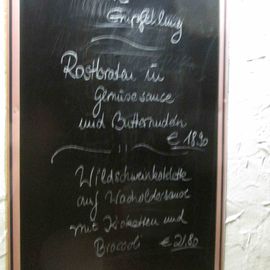 Empfehlung
Rostbraten in
Gemüsesauce
und Butternudeln
€ 18.90
Wildschweinkotelette
auf Wacholdersauce
mit Kroketten und
Broccoli € 21.80